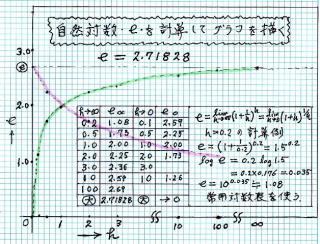 自然対数・eを計算してグラフを描く
e = 2.71828
3.0
e
2.0
1.0
e →
h→∞ e∞ h→0 e₀
0.2 1.08 0.1 2.59
0.5 1.73 0.5 2.25
1.0 2.00 1.0 2.00
2.0 2.25 2.0 1.73
3.0 2.36 3.0
10 2.59 10 1.26
100 2.69
大 2.71828 大 →0
e = lim h→∞ (1+1/h)^h = lim h→0 (1+h)^1/h
h=0.2 の計算例
e = (1+1/0.2)^0.2 = 1.5^0.2
log e = 0.2 log 1.5
= 0.2×0.176 = 0.035
e = 10^0.035 = 1.08
常用対数表を使う
0 1 2 3 10 100 ∞
→ h